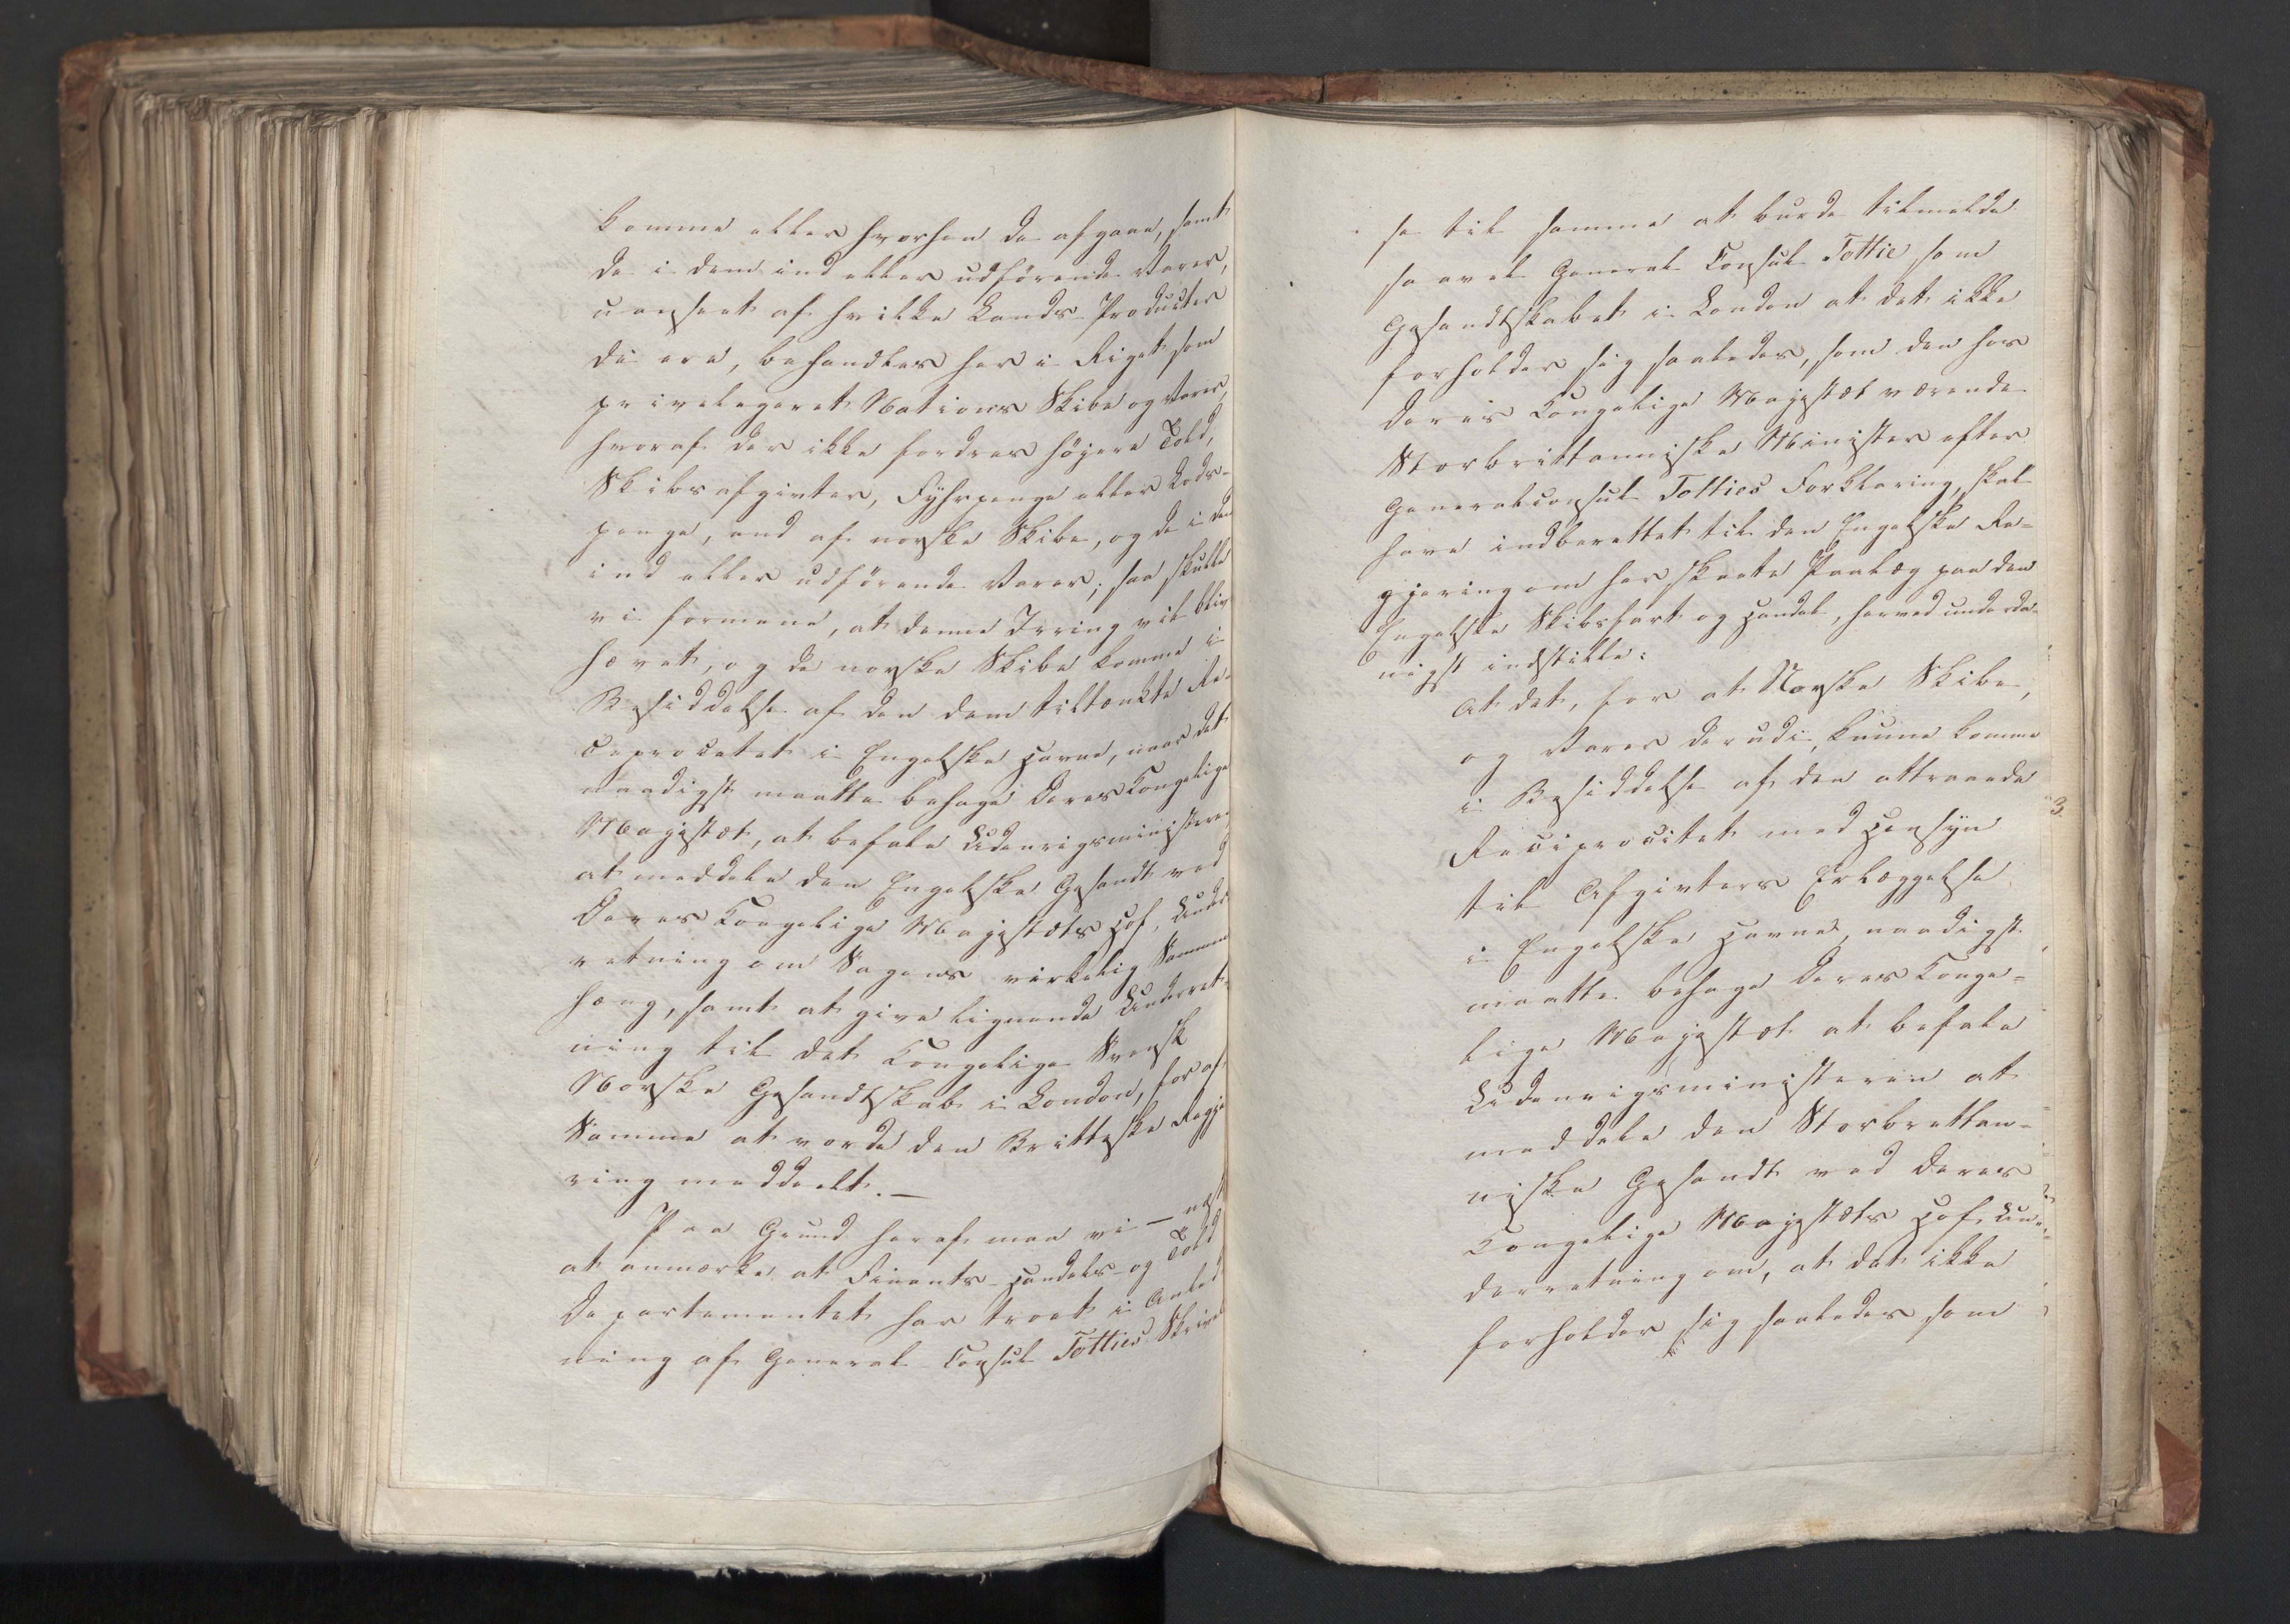 komme eller hvorhen de afgaae, samt
de i dem ind eller udførende Varer,
uanseet af hvilke Lands Producter
de ere, behandles her i Riget som
privelegeret Nations Skibe og Varer,
hvoraf der ikke fordres høyere Told,
Skibsafgivter, Fyhrpenge eller Lods-
penge, end af norske Skibe, og de i dem
ind eller udførende Varer; saa skulle
vi formene, at denne Irring vil bliv
hævet, og de norske Skibe komme i
Besiddelse af den dem tiltænkte Re-
ceprocetet i Engelske Havne, naar det
naadigst maatte behage Deres Kongelige
Majestæt, at befale Udenrigsministeren
at meddele den Engelske Gesandt ved
Deres Kongelige Majestæts Hof, Under-
retning om Sagens virkelig Sammen
hæng, samt at give lignende Underret-
ning til det Kongelige Svensk
Norske Gesandtskab i London, for af
Samme at vorde den Brittiske Regje
ring meddeelt. —
Paa Grund heraf maa vi — næst
at anmærke at Finants- Handels- og Told
Departementet har troet i Anled
ning af General-Consul Totties Skrivel
se til samme at burde tilmelde
saavel General Consul Tottie som
Gesandtskabet i London at det ikke
forholder sig saaledes, som den hos
Deres Kongelige Majestæt værende
Storbrittanniske Minister efter
Generalconsul Totties Forklaring, skal
have indberettet til den Engelske Re-
gjering om her skeete Paalæg paa den
Engelske Skibsfart og Handel, herved underda-
nigst indstille:
At det, for at Norske Skibe,
og Varer derudi, kunne komme
i Besiddelse af den attraaede
Reciprocitet med Hensyn
til Afgivters Erlæggelse
i Engelske Havne, naadigst
maatte behage Deres Konge-
lige Majestæt at befale
Udenrigsministeren at
meddele den Storbrettan-
niske Gesandt ved Deres
Kongelige Majestæts Hof, Un-
derretning om, at det ikke
forholder sig saaledes som